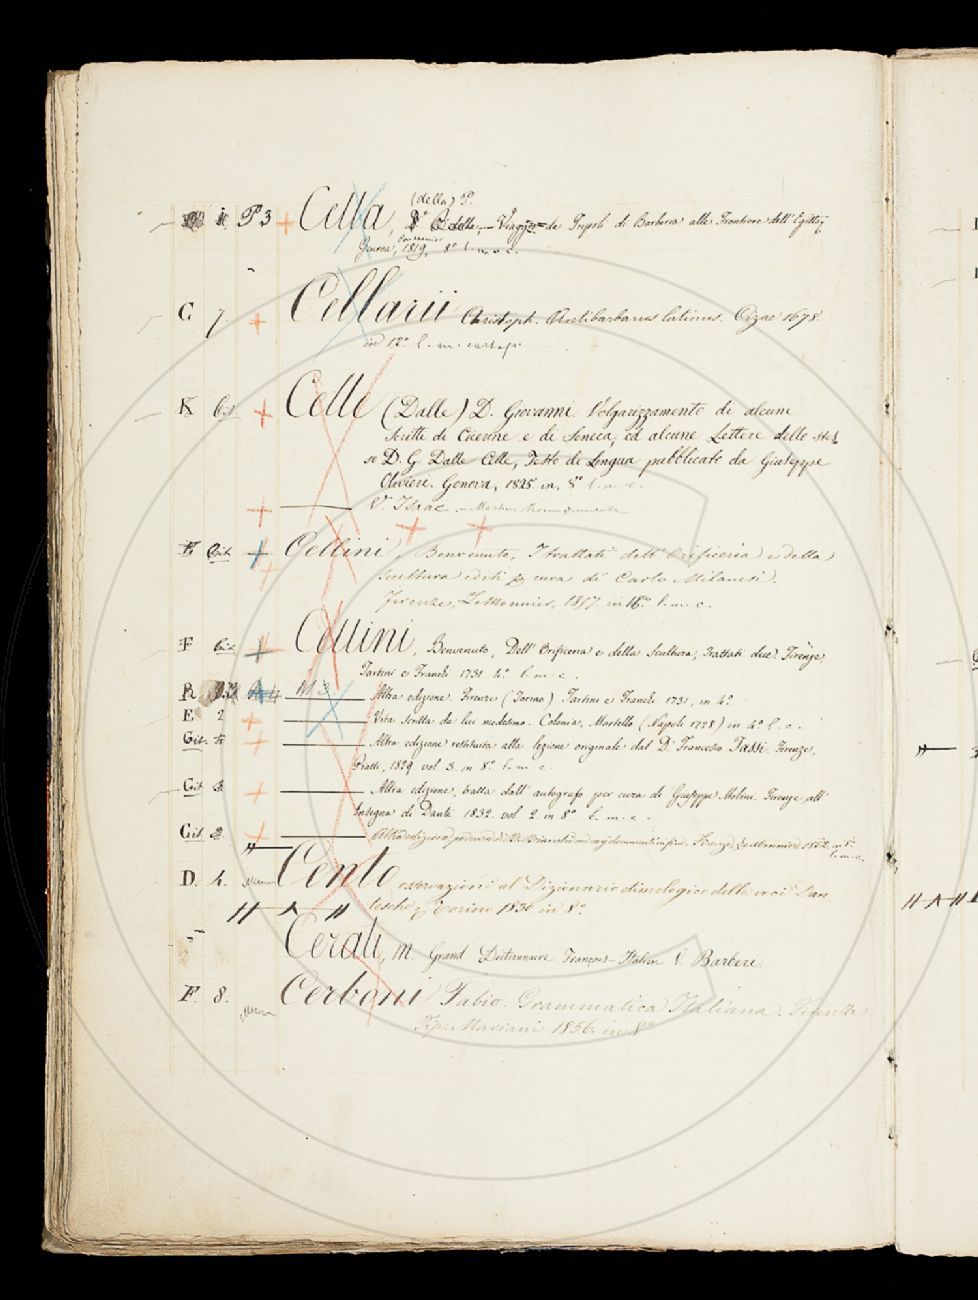 (della) P.
P3 Cella, Viaggio da Tripoli di Barberia alle Frontiere dell'Egitto,
Genova, 1819, 8º
C 7. Cellarii Christoph. Antibarbarus latinus. Cizae 1678.
in 12º l. m. cartap.
K Celle (Dalle) D. Giovanni Volgarizzamento di alcuni
Scritti di Cicerone e di Seneca, ed alcune Lettere dello stes
so D. G. Dalle Celle, Testo di Lingua pubblicato da Giuseppe
Olivieri. Genova, 1825 in 8º l. m. c.
V. Isaac.
Cellini, Benvenuto, I trattati dell'Orificeria e della
Scultura editi p cura di Carlo Milanesi.
Firenze, Le Monnier, 1857. in 16º l. m. c.
F Cellini, Benvenuto, Dell'Orificeria e della Scultura, Trattati due. Firenze,
Tartini e Franchi 1731 4º l. m. c.
R M 3 Altra edizione, Firenze (Torino) Tartini e Franchi 1731, in 4º
E 2 Vita scritta da lui medesimo. Colonia, Martello (Napoli 1728) in 4º l. c.
Git. Altra edizione restituita alla lezione originale dal D. Francesco Tassi. Firenze,
Piatti, 1829 vol. 3. in 8º l. m. c.
Git 3. Altra edizione, tratta dall'autografo per cura di Giuseppe Molini, Firenze, all'
Insegna di Dante 1832. vol. 2 in 8º l. m. c.
Git 2. Altra edizione Firenze, Le Monnier 1852 in 8º
l. m. c.
D. 4. Cento osservazioni al Dizionario etimologico delle voci Dan
tesche Torino 1830. in 8º.
Cerati, M. Grand Dictionnaire François-Italien V. Barberi.
F. 8. Cerboni Fabio. Grammatica Italiana. Firenze
Tip. Mariani 1856. in 8º